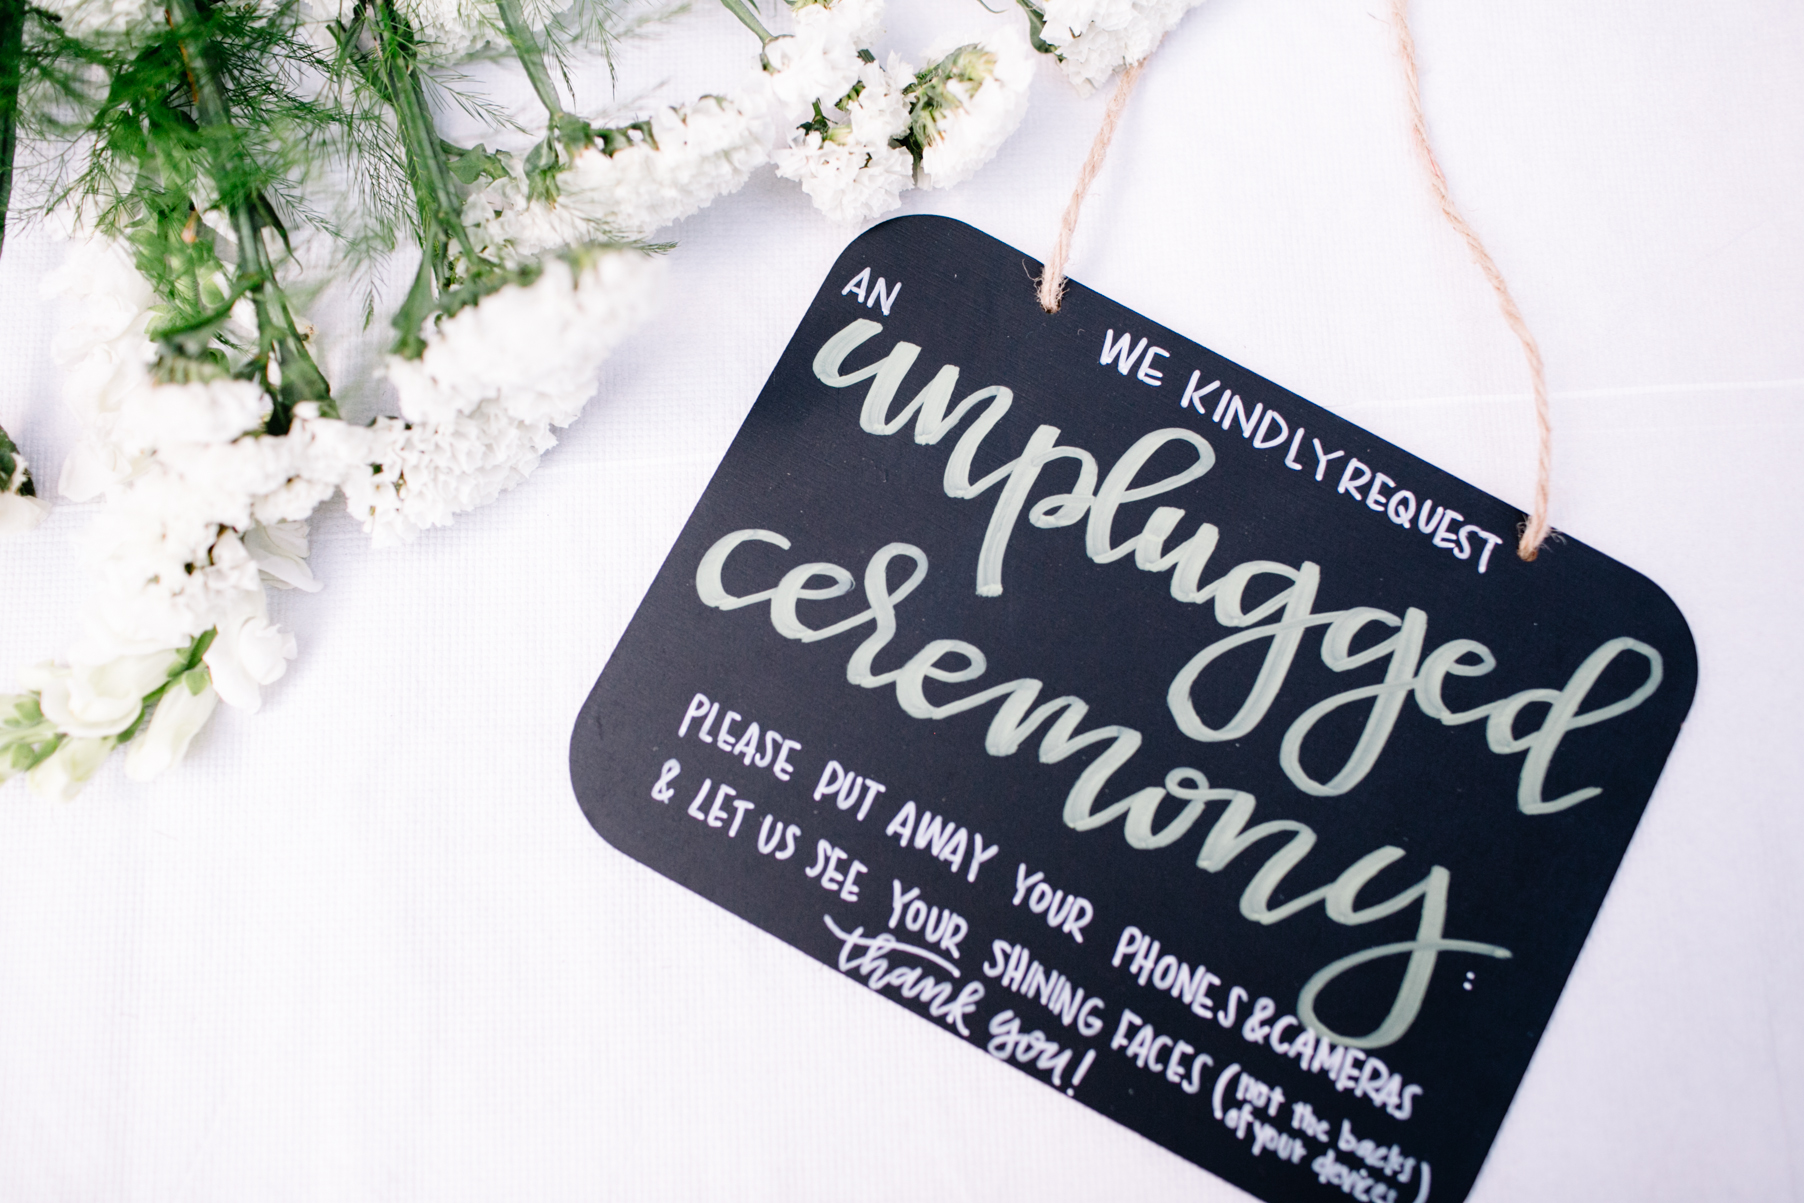 WE KINDLY REQUEST
AN
unplugged
ceremony:
PLEASE PUT AWAY YOUR PHONES & CAMERAS
& LET US SEE YOUR SHINING FACES (not the backs
of your devices)
thank you!